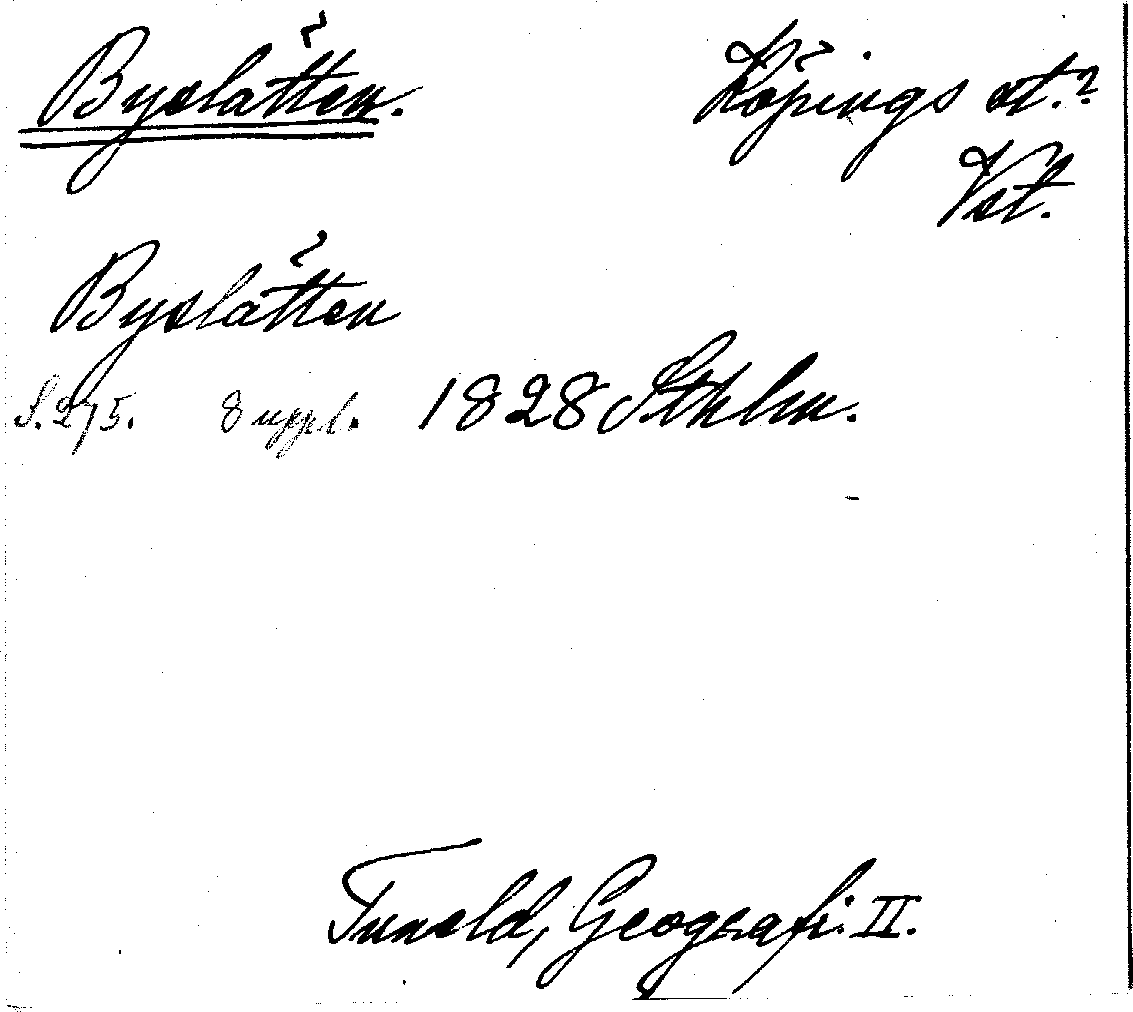 Byslätten. Köpings st.?
Vst.
Byslätten
S. 275. 8 uppl. 1828 Sthlm.
Tuneld, Geografi. II.